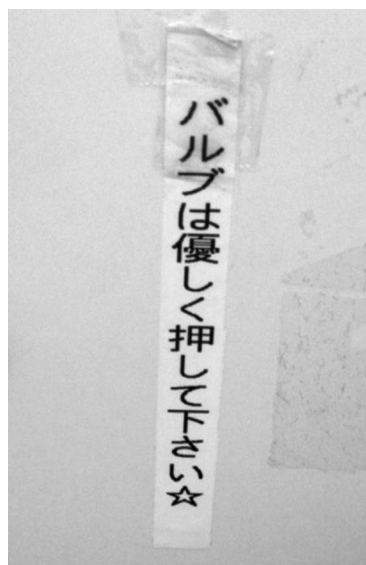 バルブは優しく押して下さい☆